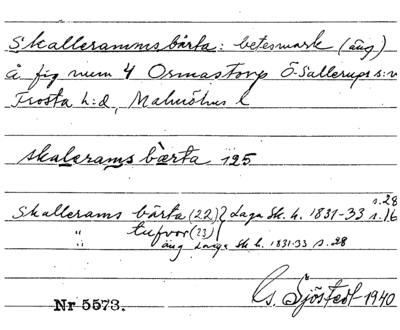 Skalleramms bärta: betesmark (äng)
å fig num 4 Ormastorp Ö-Sallerups s:n
Frosta h:d, Malmöhus l
skalerams bærta 125
s.28
Skallerams bärta (22) Laga Sk. h. 1831-33 s.16
" tufvor (23)
" äng Laga Sk h. 1831-33 s. 28
G. Sjöstedt 1940
Nr 5573.